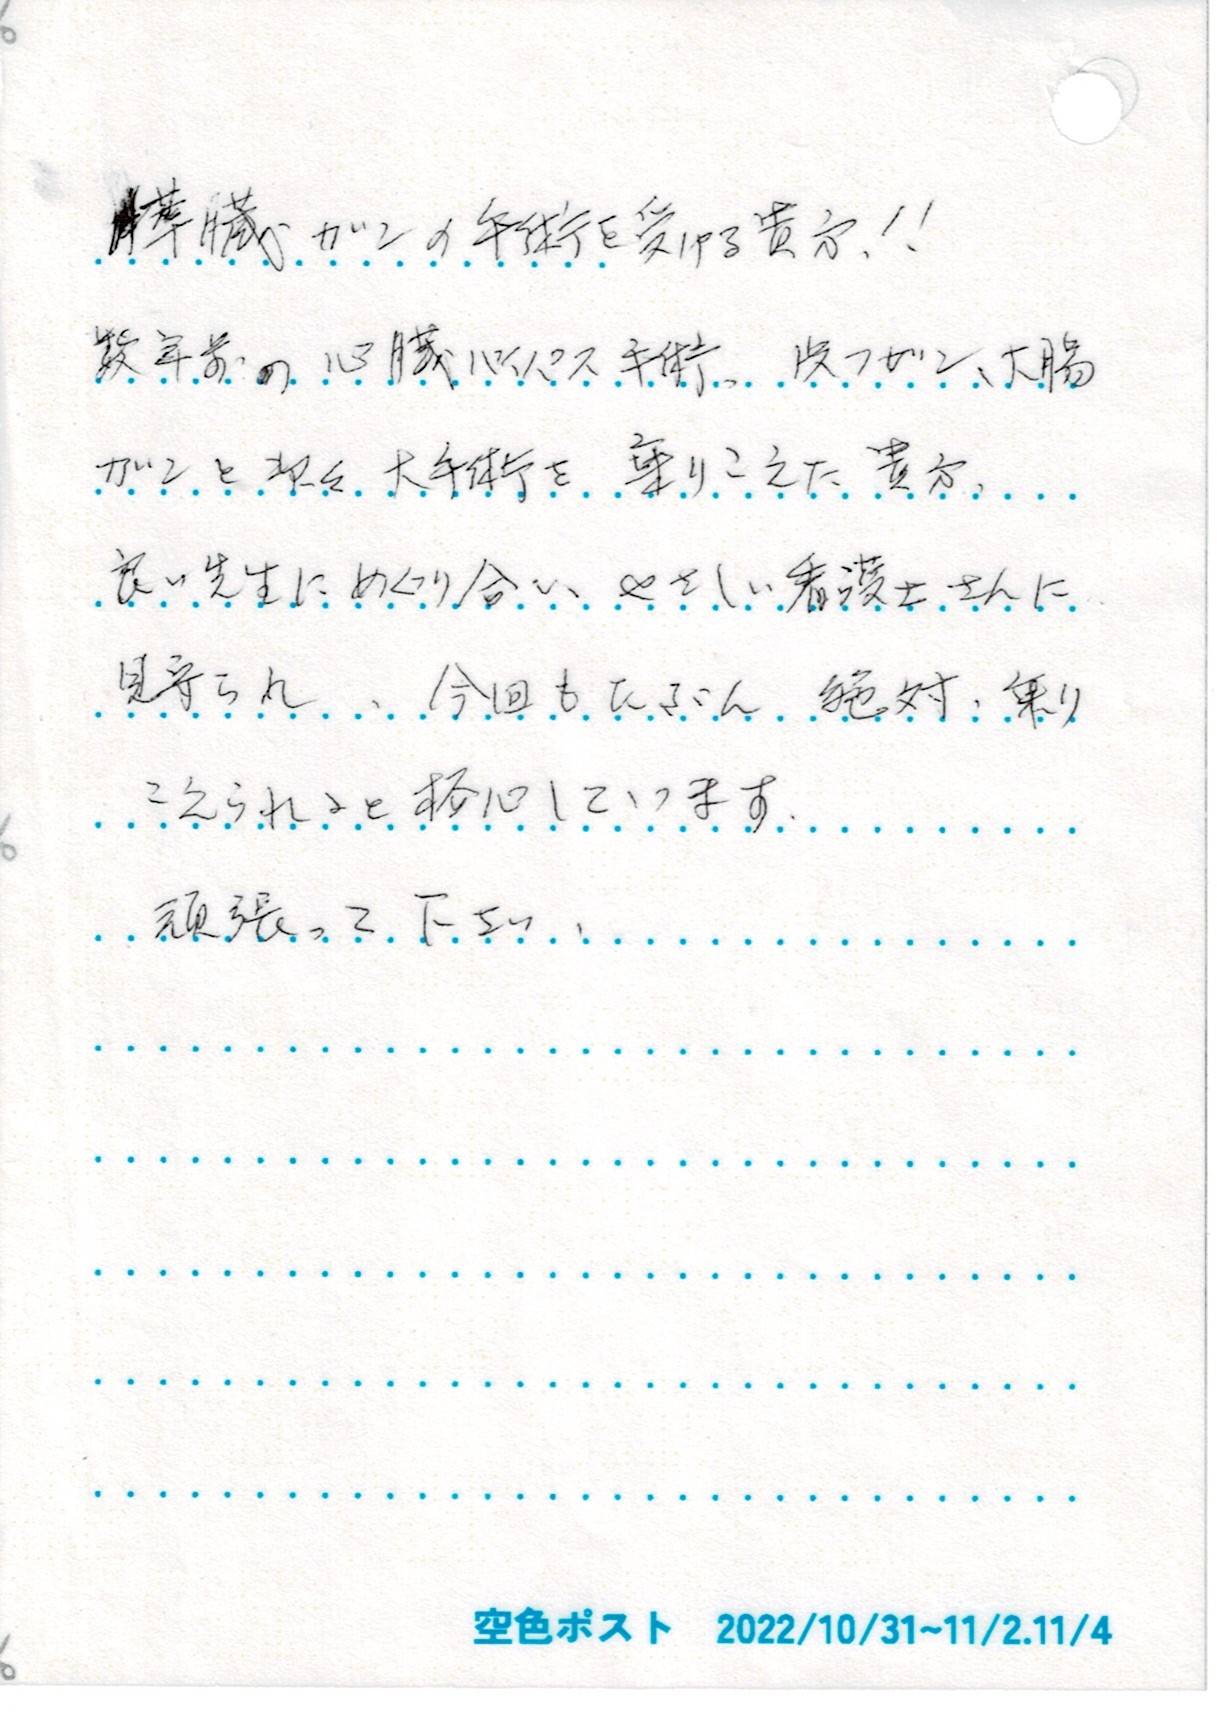 膵臓ガンの手術を受ける貴方!!
数年前の心臓バイパス手術、皮フガン、大腸
ガンと 大手術を乗りこえた貴方、
良い先生にめぐり合い、やさしい看護士さんに
見守られ、今回もたぶん 絶対、乗り
こえられると核心しています。
頑張って下さい、
空色ポスト 2022/10/31~11/2.11/4